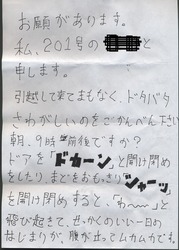 お願があります。
私、201号の と
申します。
引越して来てまもなく、ドタバタ
さわがしいのをごかんべん下さい
朝、9時前後ですか？
ドアを「ドカーン」と開け閉め
をしたり、まどをおもいきり「シャーッ」
を開け閉めすると、「わ〜〜」と
飛び起きて、せっかくのいい一日の
はじまりが、腹が立ってムカムカです。